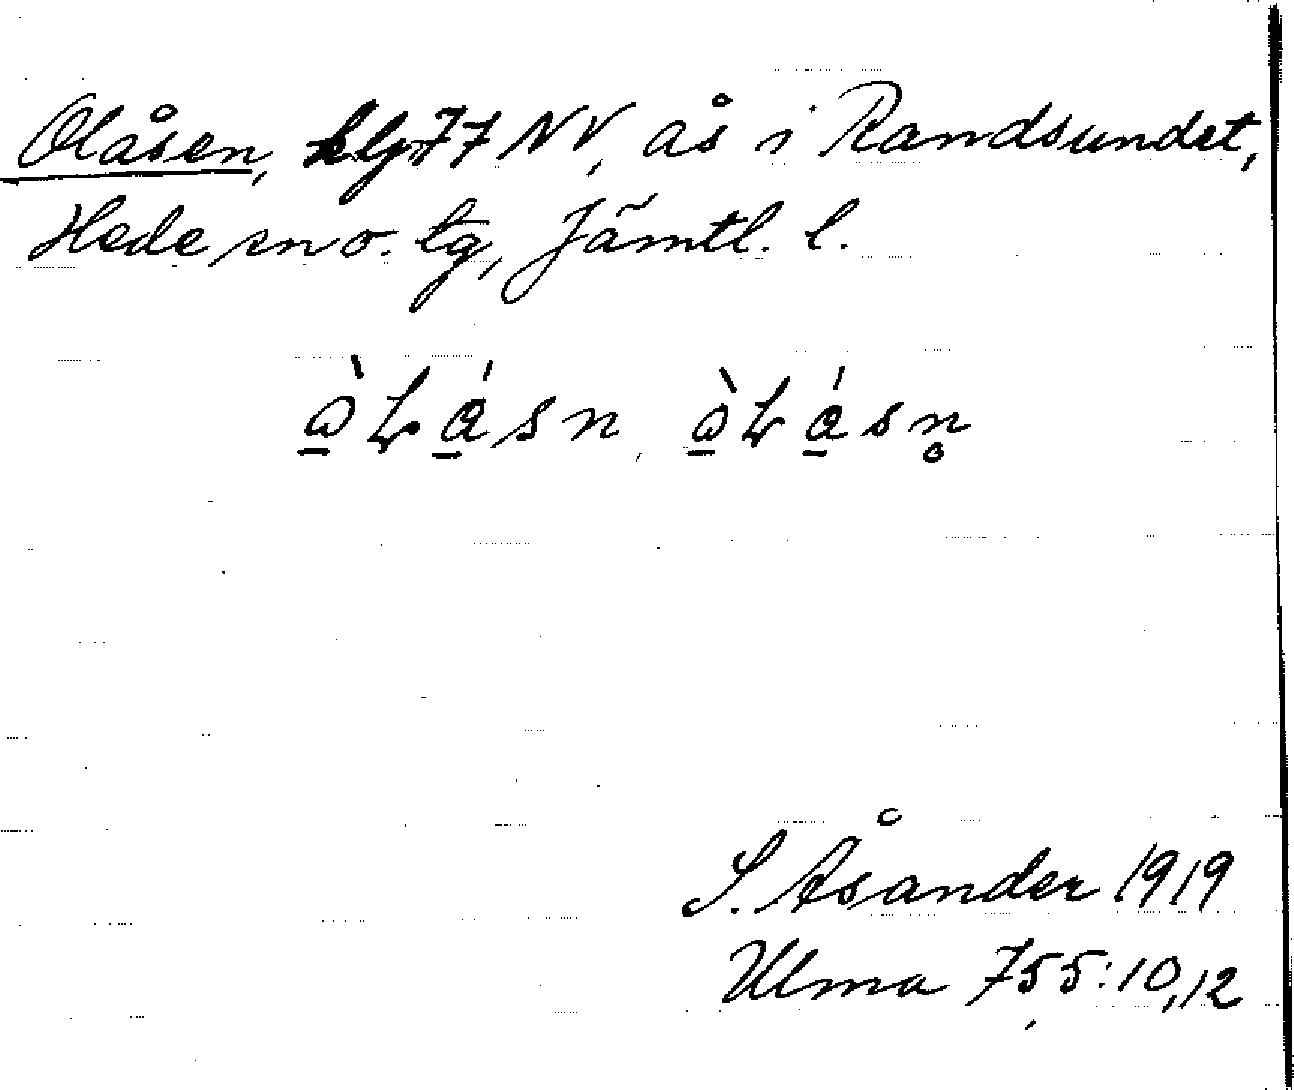 Olåsen, blp 77 NV, ås i Randsundet,
Hede sn o. tg, Jämtl. l.
S. Åsander 1919
Ulma 755:10,12